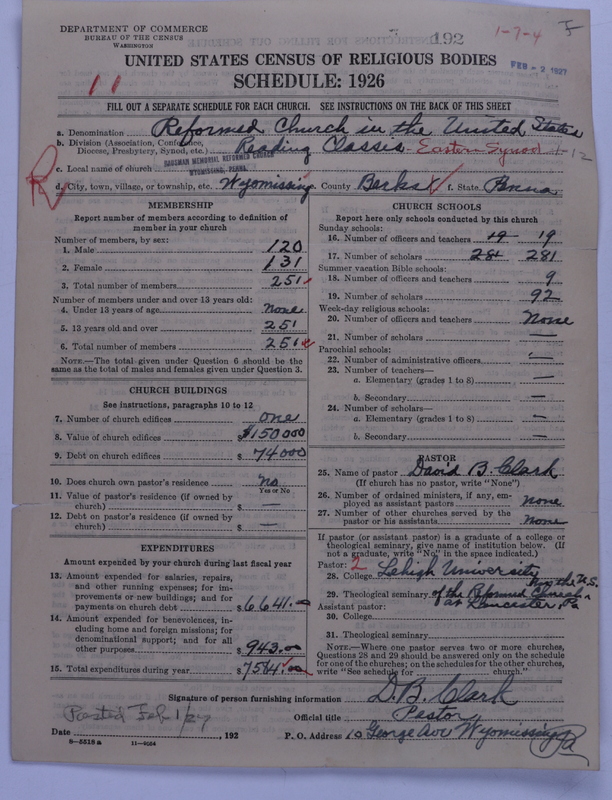 DEPARTMENT OF COMMERCE
BUREAU OF THE CENSUS
WASHINGTON
192
1-7-4
FEB - 2 1927
UNITED STATES CENSUS OF RELIGIOUS BODIES
SCHEDULE: 1926
11
FILL OUT A SEPARATE SCHEDULE FOR EACH CHURCH. SEE INSTRUCTIONS ON THE BACK OF THIS SHEET
a. Denomination Reformed Church in the United States
b. Division (Association, Conference, Diocese, Presbytery, Synod, etc.) Reading Classes Eastern Synod 1-12
c. Local name of church MEMORIAL REFORMED CHURCH
WYOMISSING, PENNA.
d. City, town, village, or township, etc. Wyomissing e. County Berks f. State Penna
MEMBERSHIP
Report number of members according to definition of
member in your church
Number of members, by sex:
1. Male 120
2. Female 131
3. Total number of members 251
Number of members under and over 13 years old:
4. Under 13 years of age none
5. 13 years old and over 251
6. Total number of members 251
NOTE.—The total given under Question 6 should be the
same as the total of males and females given under Question 3.
CHURCH BUILDINGS
See instructions, paragraphs 10 to 12
7. Number of church edifices one
8. Value of church edifices $150000
9. Debt on church edifices $ 74000
10. Does church own pastor's residence? no
Yes or No
11. Value of pastor's residence (if owned by
church) $ —
12. Debt on pastor's residence (if owned by
church) $ —
EXPENDITURES
Amount expended by your church during last fiscal year
13. Amount expended for salaries, repairs,
and other running expenses; for im-
provements or new buildings; and for
payments on church debt $ 6641.00
14. Amount expended for benevolences, in-
cluding home and foreign missions; for
denominational support; and for all
other purposes $ 943.00
15. Total expenditures during year $ 7584.00
CHURCH SCHOOLS
Report here only schools conducted by this church
Sunday schools:
16. Number of officers and teachers 19 19
17. Number of scholars 281 281
Summer vacation Bible schools:
18. Number of officers and teachers 9
19. Number of scholars 92
Week-day religious schools:
20. Number of officers and teachers None
21. Number of scholars —
Parochial schools:
22. Number of administrative officers —
23. Number of teachers—
a. Elementary (grades 1 to 8) —
b. Secondary —
24. Number of scholars—
a. Elementary (grades 1 to 8) —
b. Secondary —
PASTOR
25. Name of pastor David B. Clark
(If church has no pastor, write "None")
26. Number of ordained ministers, if any, em-
ployed as assistant pastors none
27. Number of other churches served by the
pastor or his assistants None
If pastor (or assistant pastor) is a graduate of a college or
theological seminary, give name of institution below. (If
not a graduate, write "No" in the space indicated.)
Pastor: 2
28. College Lehigh University
29. Theological seminary of the Reformed Church in the U.S.
at Lancaster, Pa
Assistant pastor:
30. College
31. Theological seminary
NOTE.—Where one pastor serves two or more churches,
Questions 28 and 29 should be answered only on the schedule
for one of the churches; on the schedules for the other churches,
write "See schedule for church."
Signature of person furnishing information D. B. Clark
Official title Pastor
Posted Feb 1/27
Date , 192
P. O. Address 10 George Ave Wyomissing Pa
8—5518 a 11—9064